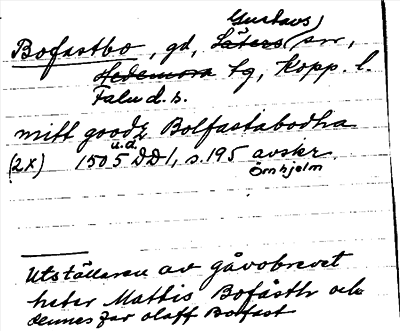 Gustavs)
Bofastbo, gd, Säters (sn,
Hedemora tg, Kopp. l.
Falu d. s.
mitt goodz Bolfastabodha
u.d.
(2x) 1505 DD1, s. 195 avskr.
Örnhjelm
Utställaren av gåvobrevet
heter Mattis Bofästh och
dennes far olaff Bofast